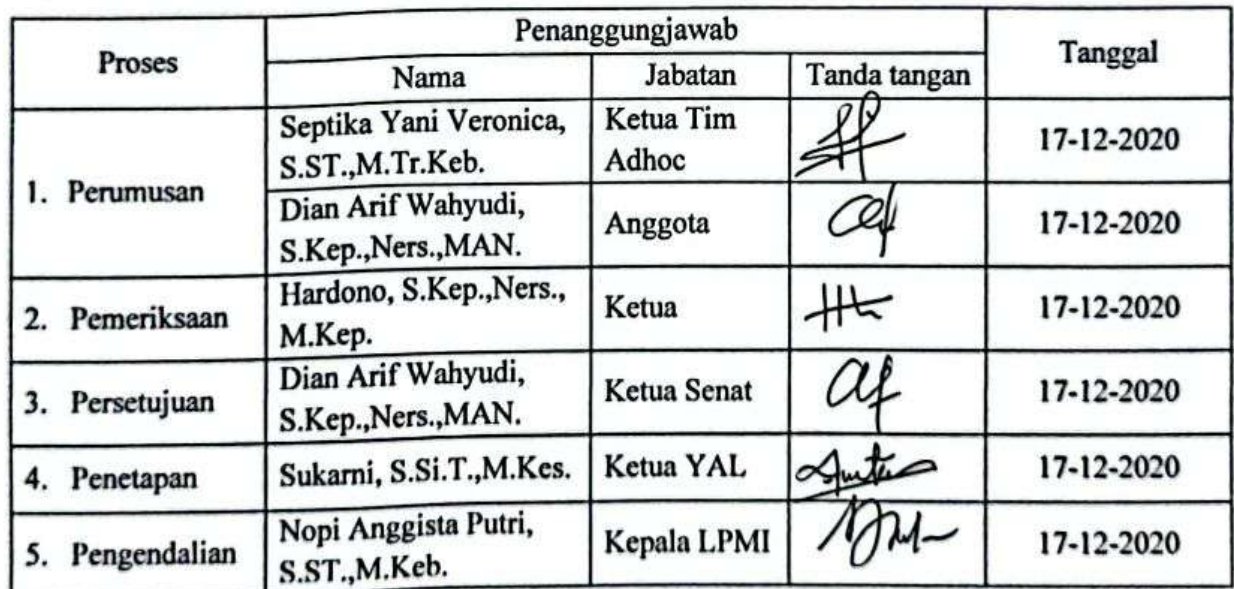 Proses
Penanggungjawab
Tanggal
Nama
Jabatan
Tanda tangan
1. Perumusan
Septika Yani Veronica,
S.ST.,M.Tr.Keb.
Ketua Tim
Adhoc
17-12-2020
Dian Arif Wahyudi,
S.Kep.,Ners.,MAN.
Anggota
17-12-2020
2. Pemeriksaan
Hardono, S.Kep.,Ners.,
M.Kep.
Ketua
17-12-2020
3. Persetujuan
Dian Arif Wahyudi,
S.Kep.,Ners.,MAN.
Ketua Senat
17-12-2020
4. Penetapan
Sukarni, S.Si.T.,M.Kes.
Ketua YAL
17-12-2020
5. Pengendalian
Nopi Anggista Putri,
S.ST.,M.Keb.
Kepala LPMI
17-12-2020